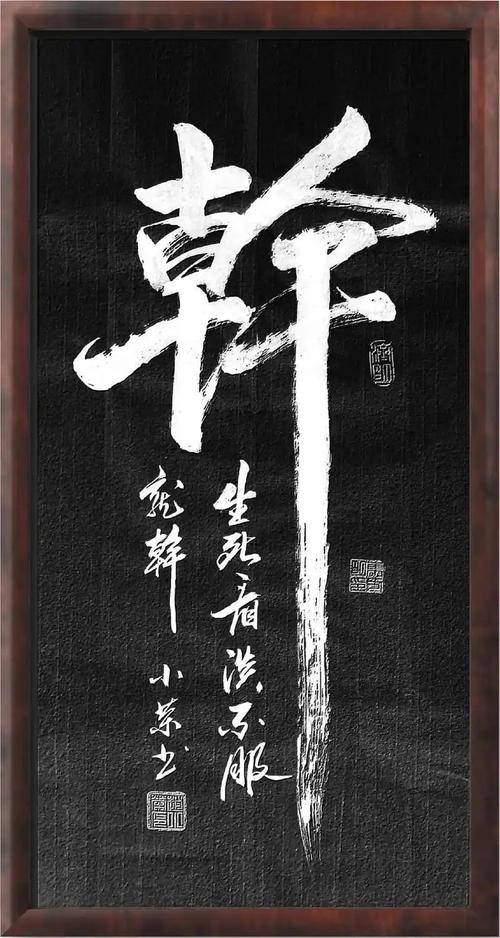 幹
生死看淡不服
就幹
小荣书